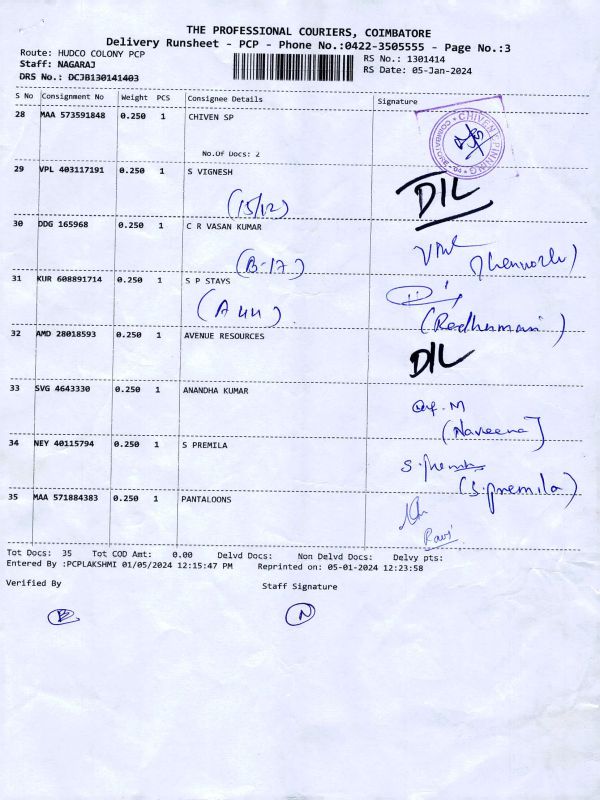 THE PROFESSIONAL COURIERS, COIMBATORE
Delivery Runsheet - PCP - Phone No.:0422-3505555 - Page No.:3
Route: HUDCO COLONY PCP
RS No.: 1301414
Staff: NAGARAJ
RS Date: 05-Jan-2024
DRS No.: DCJB130141403
S No Consignment No Weight PCS Consignee Details Signature
28 MAA 573591848 0.250 1 CHIVEN SP
No.Of Docs: 2
29 VPL 403117191 0.250 1 S VIGNESH
DIL
(15/12)
30 DDG 165968 0.250 1 C R VASAN KUMAR
(B-17)
31 KUR 608891714 0.250 1 S P STAYS
(A 44)
32 AMD 28018593 0.250 1 AVENUE RESOURCES
DIL
33 SVG 4643330 0.250 1 ANANDHA KUMAR
(Naveena)
34 NEY 40115794 0.250 1 S PREMILA
(S.premila)
35 MAA 571884383 0.250 1 PANTALOONS
Ravi
Tot Docs: 35 Tot COD Amt: 0.00 Delvd Docs: Non Delvd Docs: Delvy pts:
Entered By :PCPLAKSHMI 01/05/2024 12:15:47 PM Reprinted on: 05-01-2024 12:23:58
Verified By Staff Signature
N